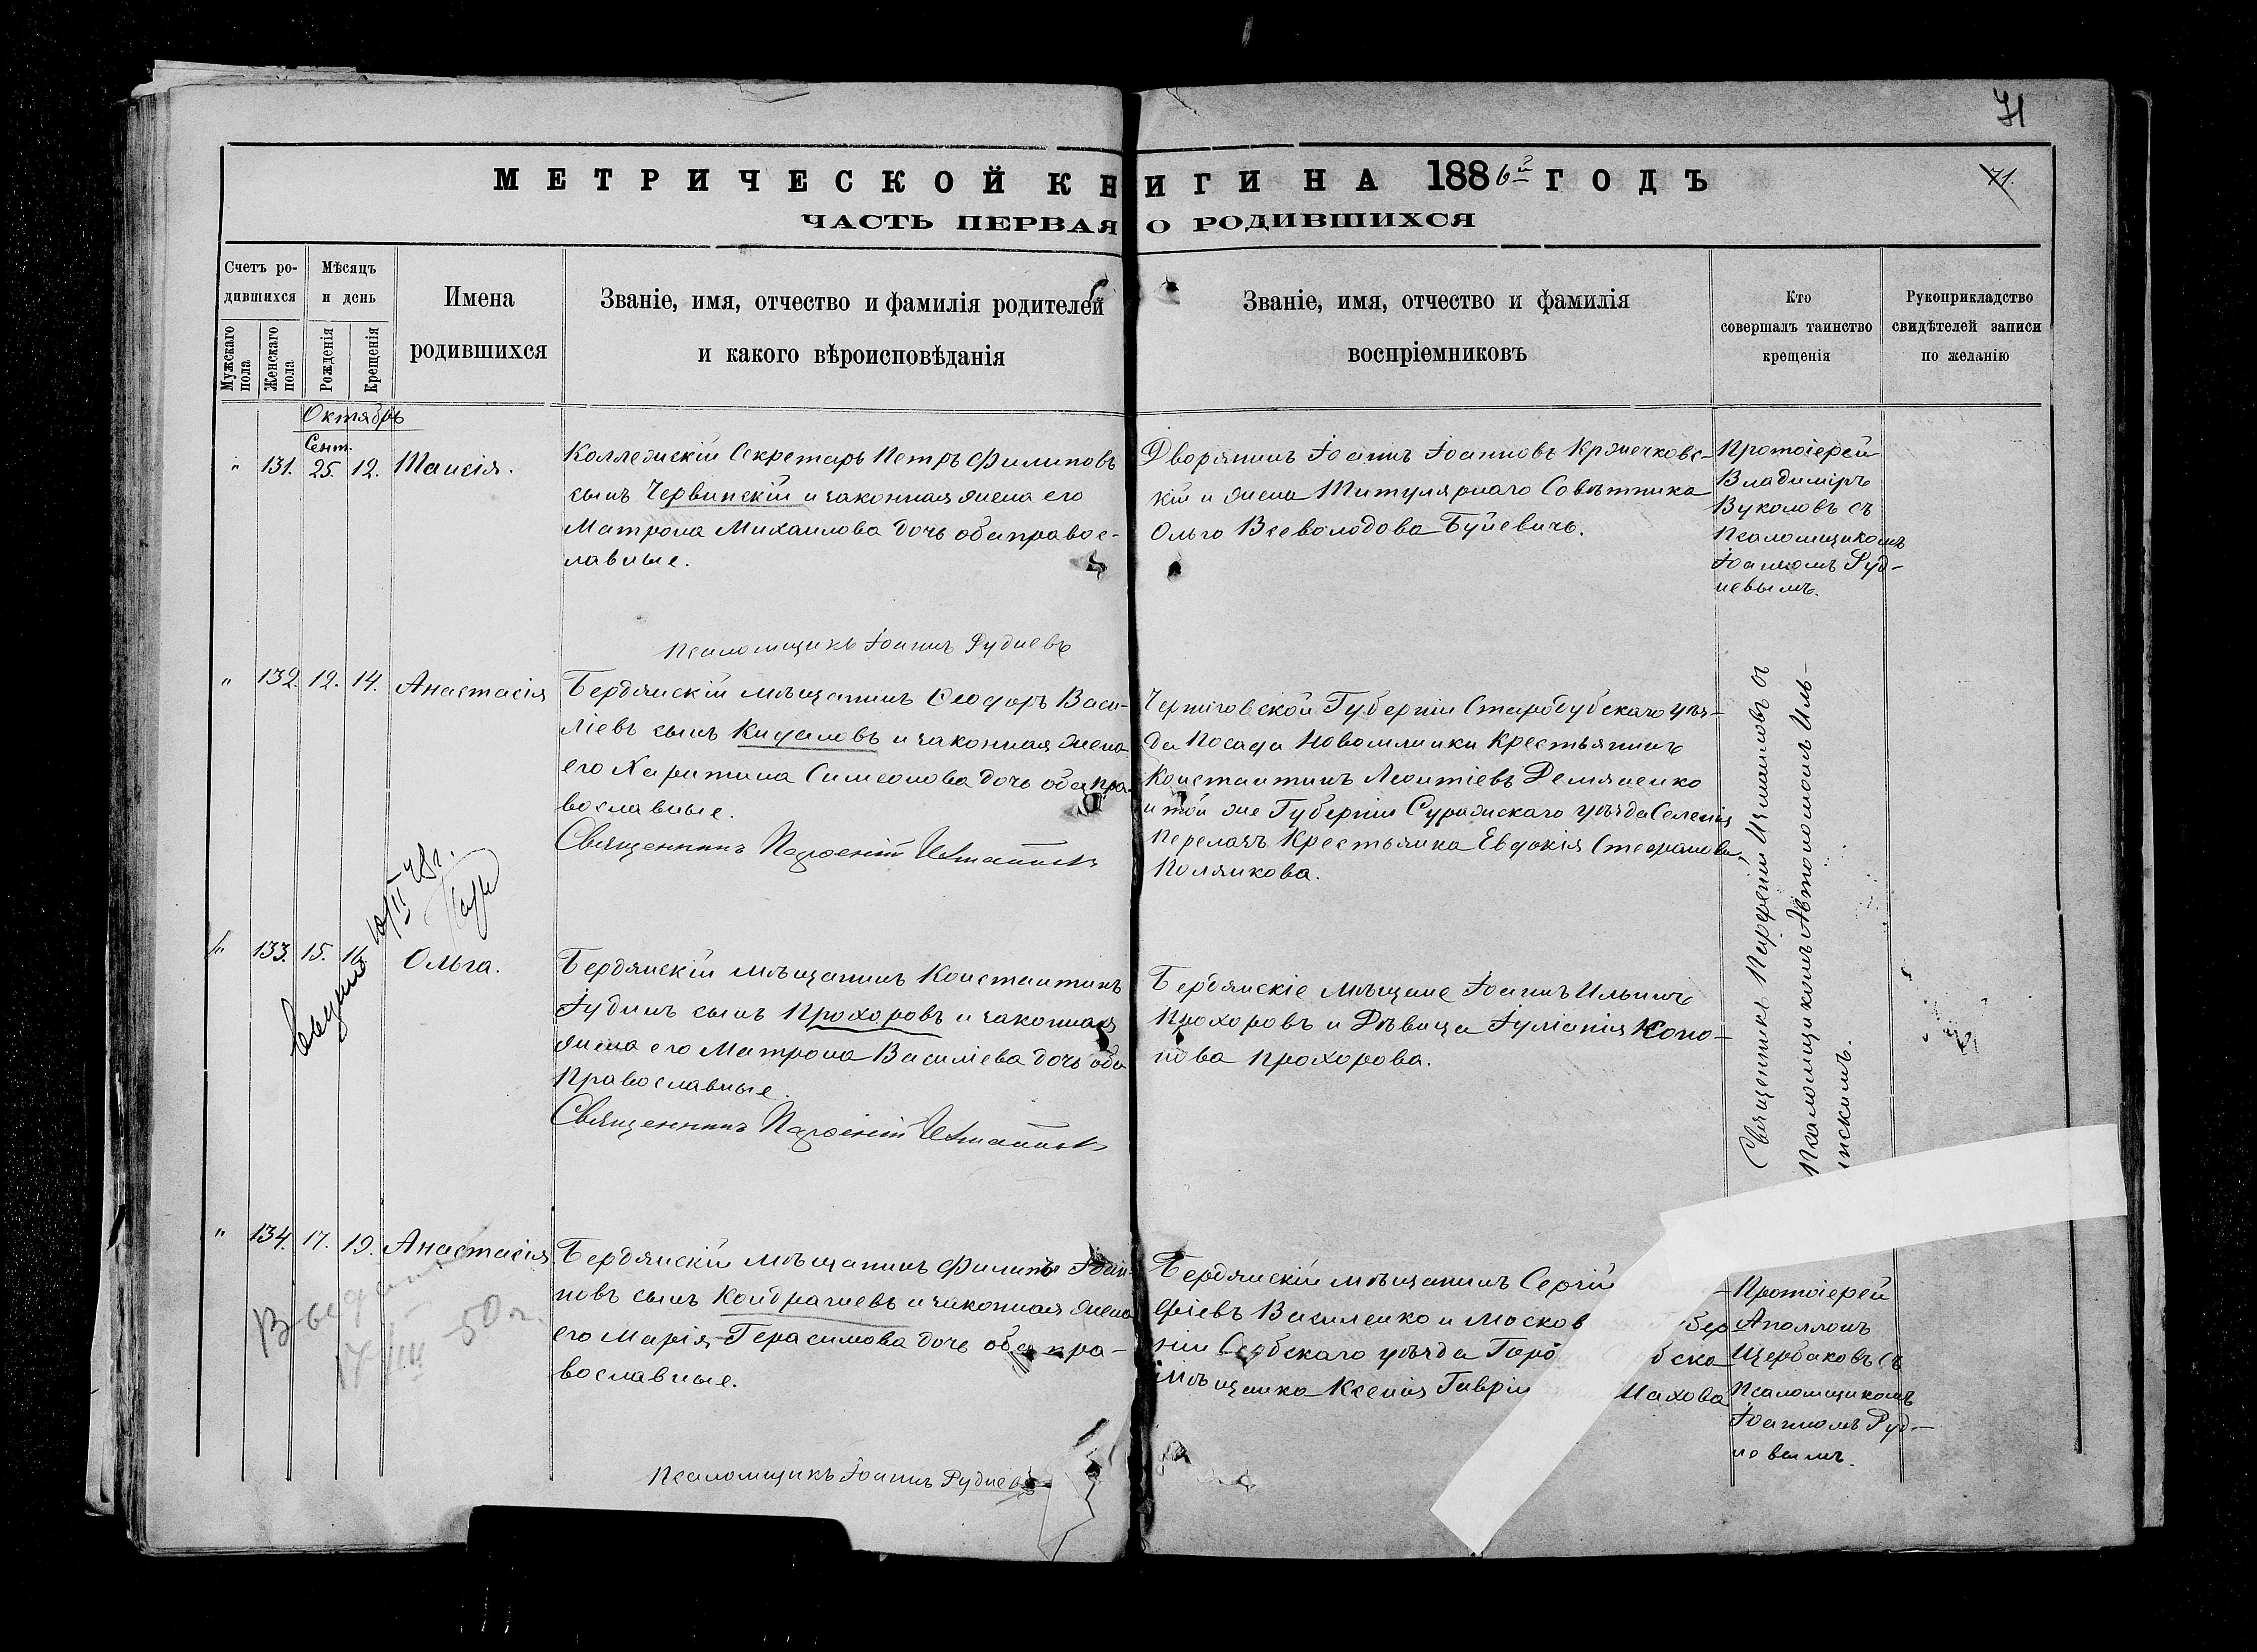 71
МЕТРИЧЕСКОЙ КНИГИ НА 1886й ГОДЪ
71.
ЧАСТЬ ПЕРВАЯ О РОДИВШИХСЯ
Счетъ ро-
дившихся
Мужскаго пола
Женскаго пола
Мѣсяцъ
и день
Рожденія
Крещенія
Имена
родившихся
Званіе, имя, отчество и фамилія родителей
и какого вѣроисповѣданія
Званіе, имя, отчество и фамилія
воспріемниковъ
Кто
совершалъ таинство
крещенія
Рукоприкладство
свидѣтелей записи
по желанію
Октябрь
Сент.
" 131. 25. 12. Таисія.
Коллежскій Секретарь Петръ Филиповъ
сынъ Червинскій и законная жена его
Матрона Михаилова дочь оба правос-
лавные.
Дворянинъ Іоаннъ Іоанновъ Кржечковс-
кій и жена Титулярнаго Совѣтника
Ольга Всеволодова Буцевичъ.
Протоіерей
Владиміръ
Вуколовъ съ
Псаломщикомъ
Іоанномъ Руд-
невымъ.
Псаломщикъ Іоаннъ Рудневъ
" 132. 12. 14. Анастасія
Бердянскій мѣщанинъ Ѳеодоръ Васи-
ліевъ сынъ Кидаловъ и законная жена
его Харитина Симеонова дочь оба пра-
вославные.
Священникъ Парѳеній
Черниговской Губерніи Стародубскаго уѣз-
да Посада Новомлинки Крестьянинъ
Константинъ Леонтіевъ Демяненко
и той же Губерніи Суражскаго уѣзда Селенія
Перелазъ Крестьянка Евдокія Стефанова
Полякова.
Священникъ Парѳеній Измаиловъ съ
Псаломщикомъ Автономомъ Иль-
инскимъ.
10/II 48г.
" 133. 15. 16. Ольга.
Бердянскій мѣщанинъ Константинъ
Іудинъ сынъ Прохоровъ и законная
жена его Матрона Василіева дочь оба
Православные.
Священникъ Парѳеній
Бердянскіе мѣщане Іоаннъ Ильинъ
Прохоровъ и Дѣвица Іуліанія Коно-
нова Прохорова.
" 134. 17. 19. Анастасія
Выдано
17/III 50 г.
Бердянскій мѣщанинъ Филипъ Іоан-
новъ сынъ Кондратиевъ и законная жена
его Марія Герасимова дочь оба пра-
вославные.
Бердянскій мѣщанинъ Сергій
еріевъ Василенко и Москов бер
ніи уѣзда Горо бска
Мѣщанка Ксенія Гаврі Махова
Протоіерей
Аполлонъ
Щербаковъ съ
Псаломщикомъ
Іоанномъ Руд-
невымъ.
Псаломщикъ Іоаннъ Рудневъ